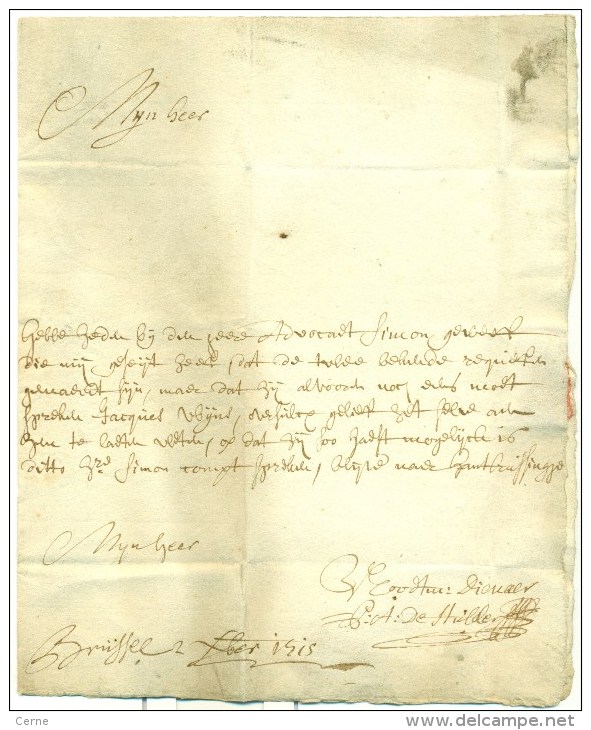 Mijn heer
Hebbe heden bij den heere Advocaet Simon geweest
die mij geseijt heeft, dat de twee bekende requesten
gemaeckt sijn, maer dat hij alvooren noch eens moet
spreken Jacques Wijns, oversulcx gelieft het selve aen
hem te laeten weten, op dat hij soo haest mogelijck is
ditto hre Simon compt spreken, blijve naer hantkussinge
Mijn heer
V Ootm: Dienaer
De Hulder
Brussel 2 xber 1715
Cerne
www.delcampe.net